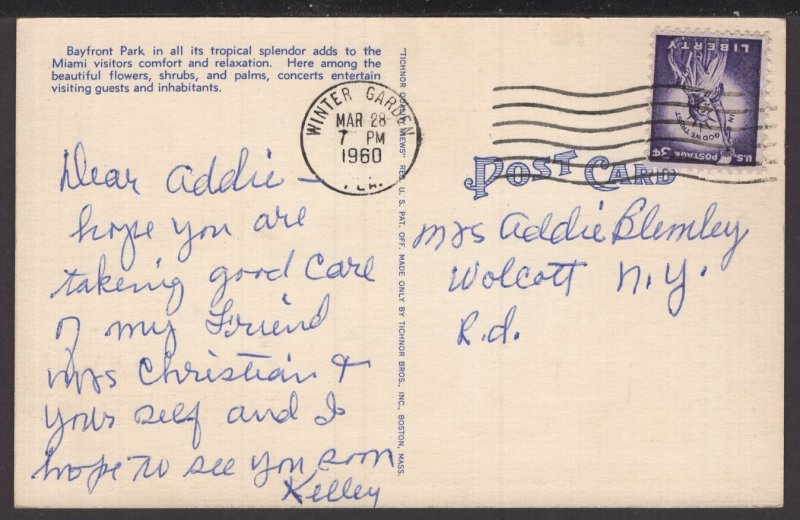 Bayfront Park in all its tropical splendor adds to the
Miami visitors comfort and relaxation. Here among the
beautiful flowers, shrubs, and palms, concerts entertain
visiting guests and inhabitants.
WINTER GARDEN
MAR 28
7 PM
1960
FLA.
LIBERTY
IN GOD WE TRUST
U.S. POSTAGE 3¢
POST CARD
Dear Addie –
hope you are
takeing good care
of my Friend
Mrs Christian &
your self and I
hope to see you soon
Kelley
"TICHNOR QUALITY VIEWS" REG. U. S. PAT. OFF. MADE ONLY BY TICHNOR BROS., INC., BOSTON, MASS.
Mrs Addie Blemley
Wolcott N.Y.
R.d.